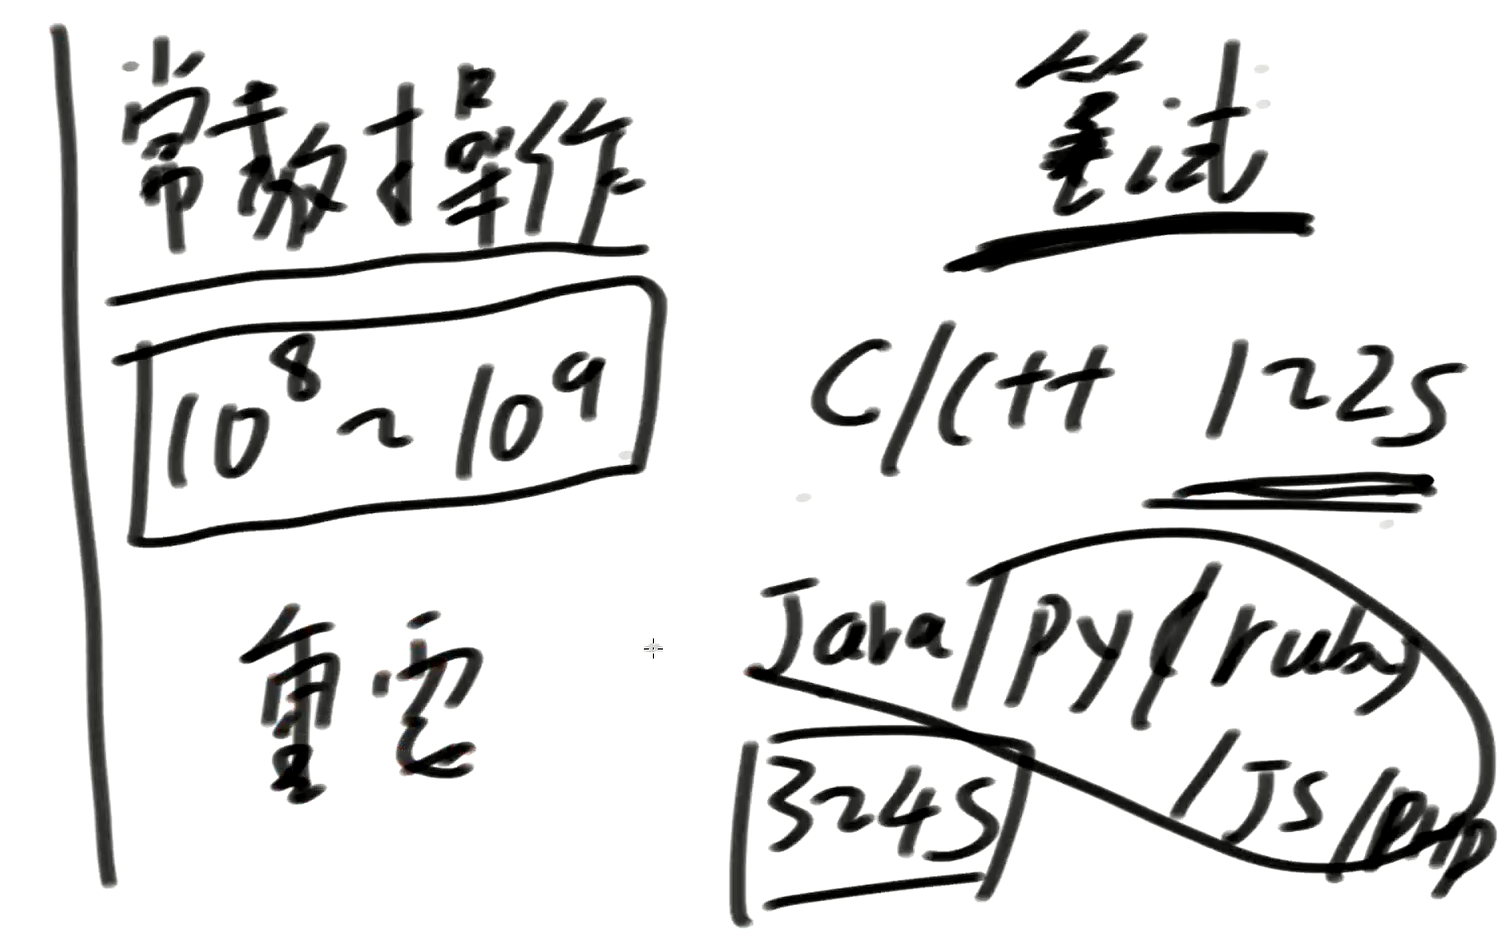 常数操作
10⁸~10⁹
笔试
C/C++ 1~2s
Java/py/ruby
/JS/php
3~4s